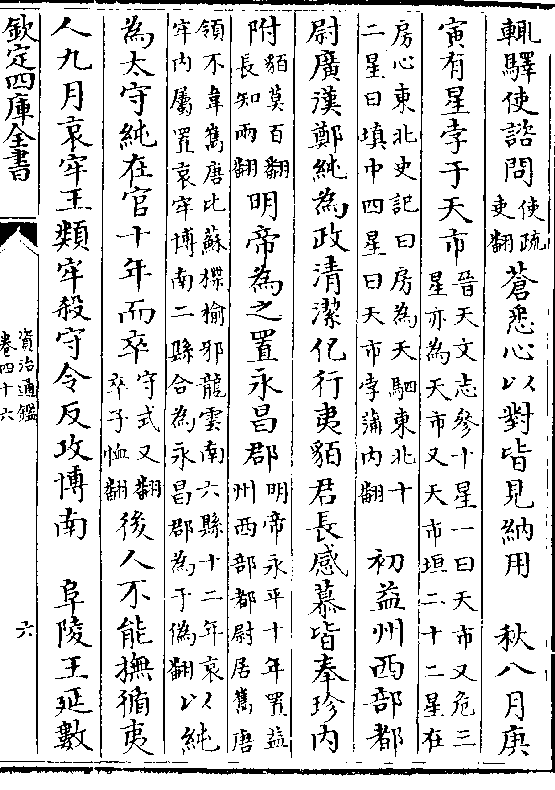 輒驛使諮問使疏吏翻蒼悉心以對皆見納用　秋八月庚
寅有星孛于天市晉天文志參十星一曰天市又危三星亦為天市又天市垣二十二星在
房心東北史記曰房為天駟東北十二星曰填中四星曰天市孛蒲内翻　初益州西部都
尉廣漢鄭純為政清潔化行夷貊君長感慕皆奉珍内
附貊莫百翻長知兩翻明帝為之置永昌郡明帝永平十年置益州西部都尉居巂唐
領不韋巂唐比蘇楪榆邪龍雲南六縣十二年哀牢内屬置哀牢博南二縣合為永昌郡為于偽翻以純
為太守純在官十年而卒守式又翻卒子恤翻後人不能撫循夷
人九月哀牢王類牢殺守令反攻博南　阜陵王延數
欽定四庫全書
資治通鑑
卷四十六
六